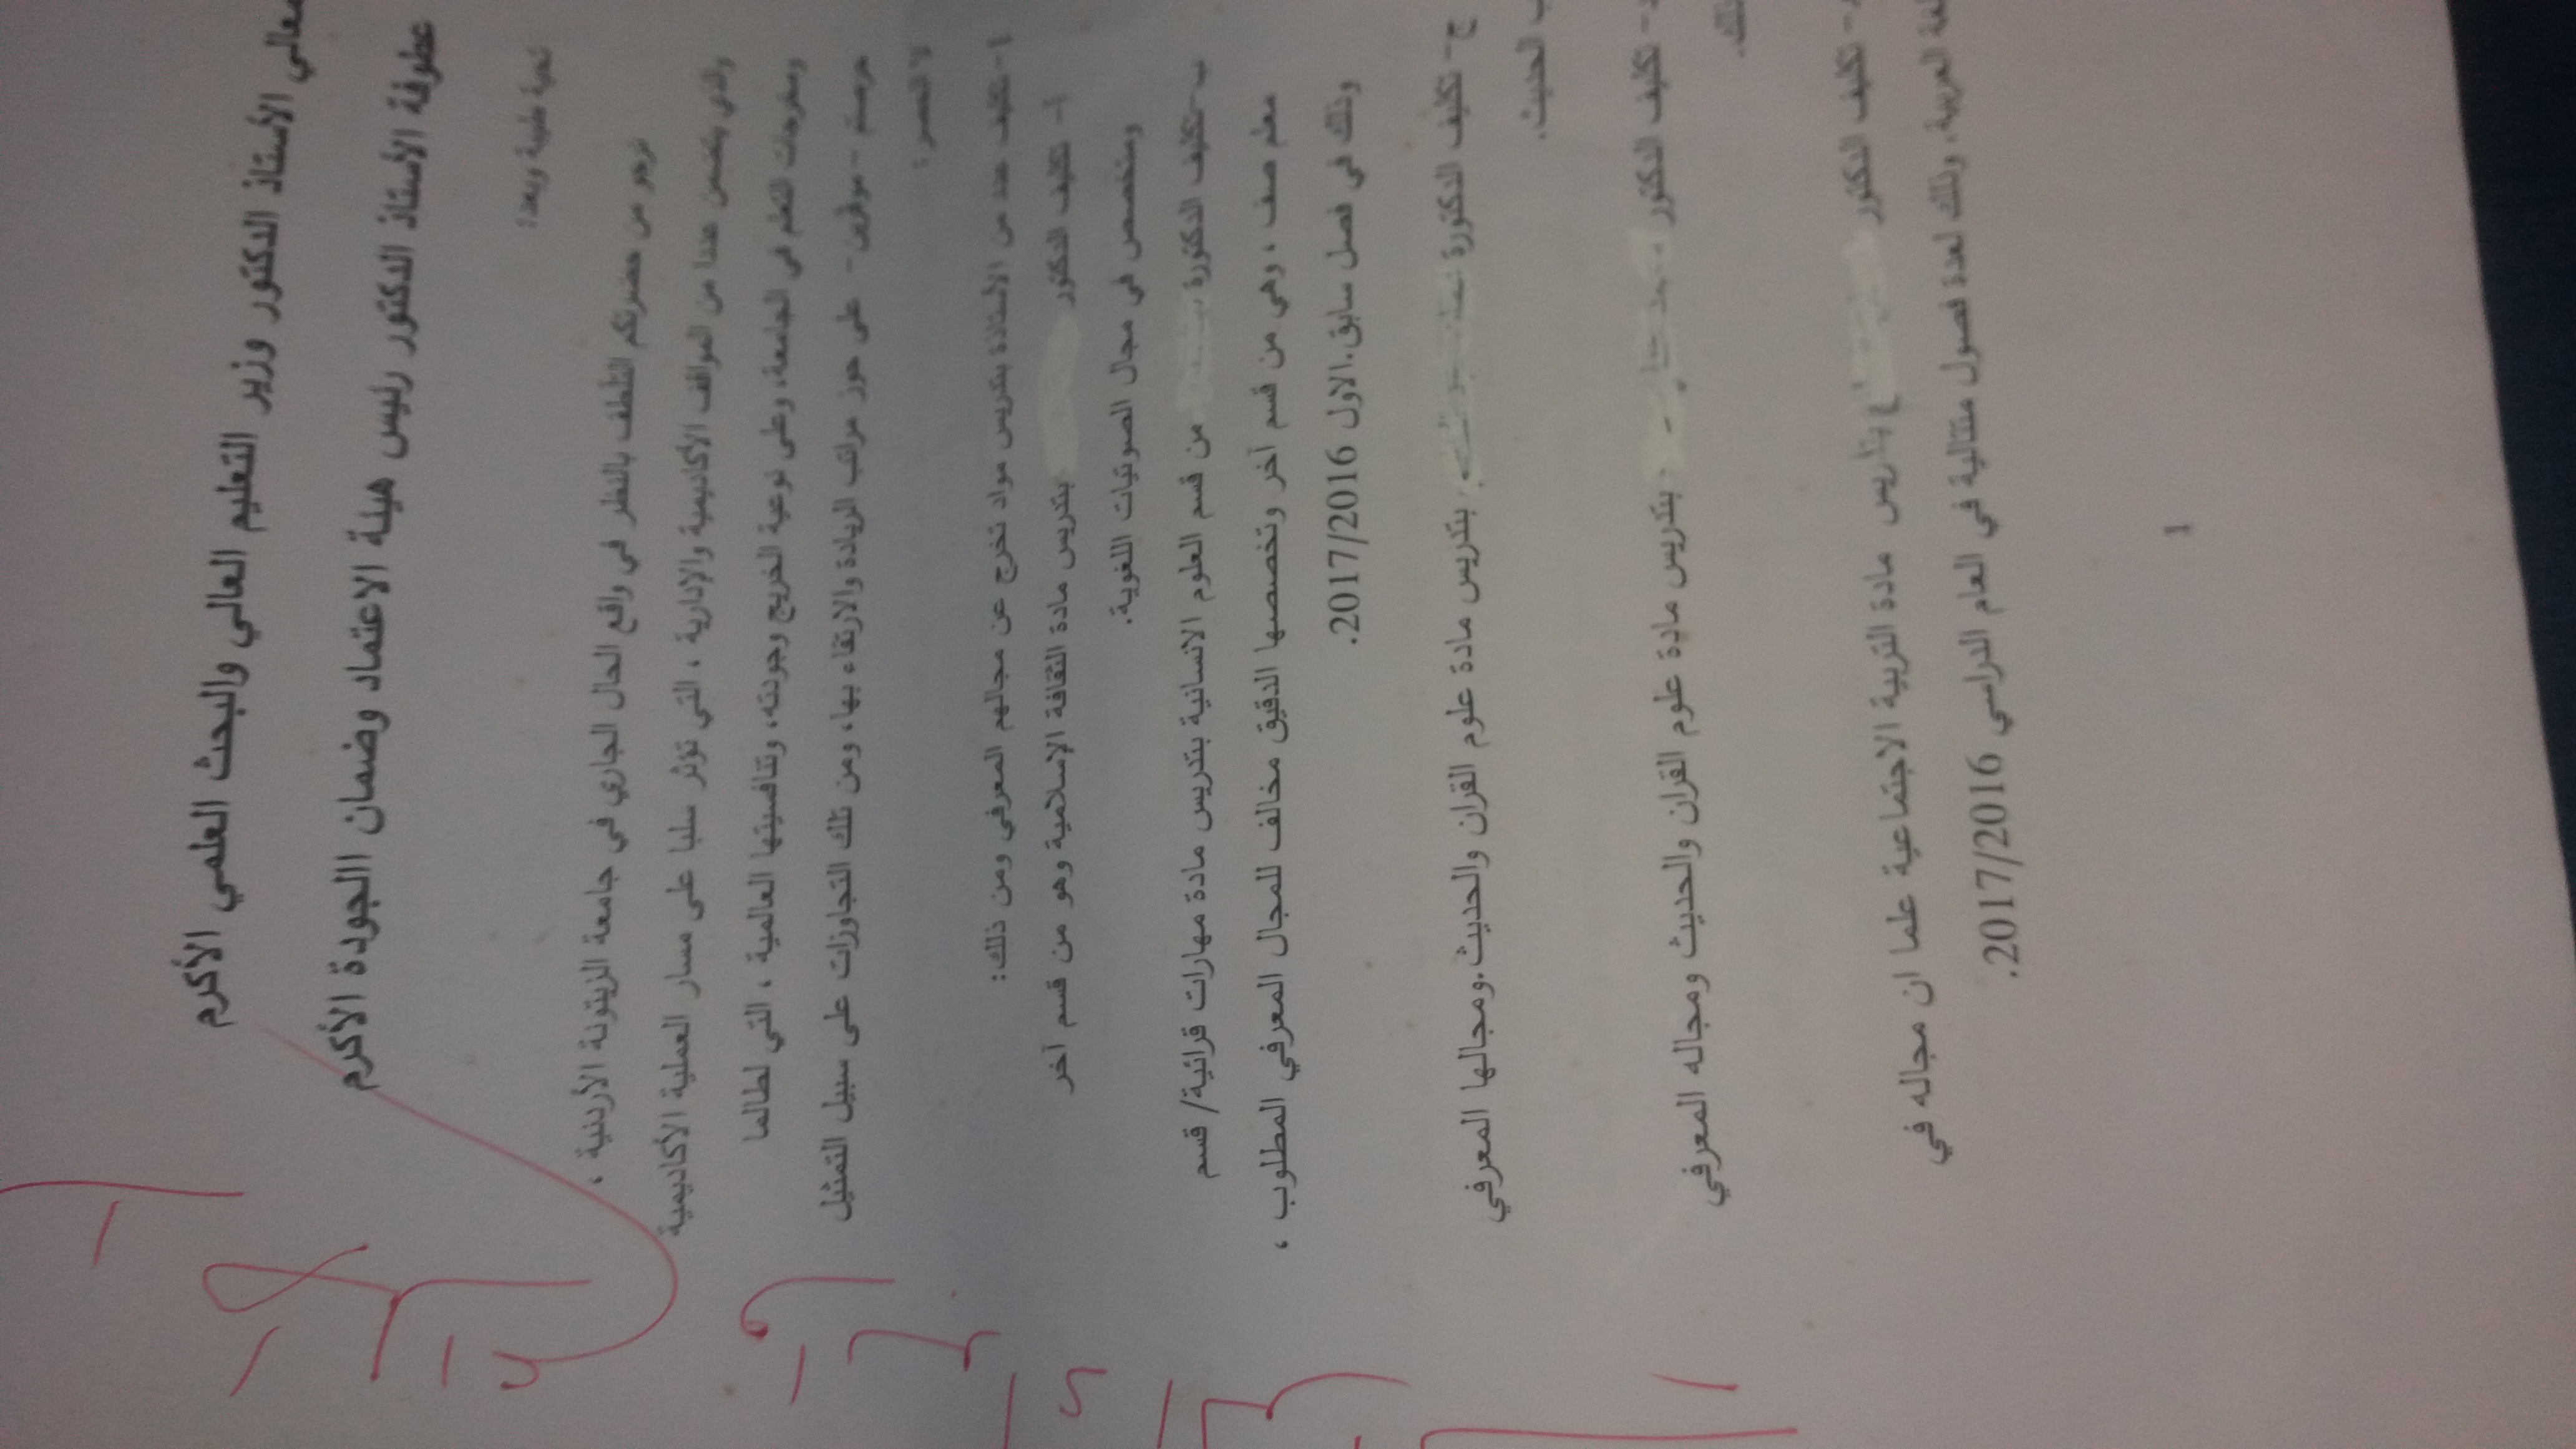 معالي الأستاذ الدكتور وزير التعليم العالي والبحث العلمي الأكرم
عطوفة الأستاذ الدكتور رئيس هيئة الاعتماد وضمان الجودة الأكرم
تحية طيبة وبعد:
نرجو من حضرتكم التلطف بالنظر في واقع الحال الجاري في جامعة الزيتونة الأردنية ،
والذي يتضمن عددا من المواقف الأكاديمية والإدارية ، التي تؤثر سلبا على مسار العملية الأكاديمية
ومخرجات التعلم في الجامعة، وعلى نوعية الخريج وجودته، وتنافسيتها العالمية ، التي لطالما
حرصتم -موقرين- على حوز مراتب الريادة والارتقاء بها، ومن تلك التجاوزات على سبيل التمثيل
لا الحصر:
1- تكليف عدد من الأساتذة بتدريس مواد تخرج عن مجالهم المعرفي ومن ذلك:
أ- تكليف الدكتور بتدريس مادة الثقافة الإسلامية وهو من قسم آخر
ومتخصص في مجال الصوتيات اللغوية.
ب-تكليف الدكتورة من قسم العلوم الانسانية بتدريس مادة مهارات قرائية/ قسم
معلم صف ، وهي من قسم آخر وتخصصها الدقيق مخالف للمجال المعرفي المطلوب ،
وذلك في فصل سابق.الاول 2017/2016.
ج- تكليف الدكتورة بتدريس مادة علوم القران والحديث.ومجالها المعرفي
الحديث.
- تكليف الدكتور بتدريس مادة علوم القران والحديث ومجاله المعرفي
- تكليف الدكتور بتدريس مادة التربية الاجتماعية علما ان مجاله في
العربية، وذلك لعدة فصول متتالية في العام الدراسي 2017/2016.
1